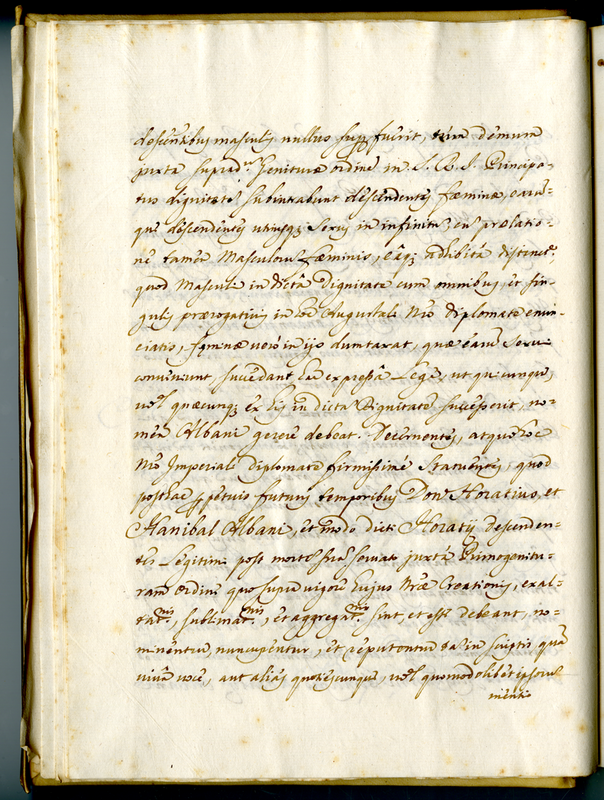 descentibus masculis nullus sup. fuerit, tum demum
juxta suprad. Genituræ ordine in S. R. I. Principa-
tus dignitate subintrabunt descendentes fæminæ, earu-
que descendentes utriusq; Sexus in infinitu, cu prælatio-
ne tamen Masculoru fæminis, eaq; adhibita distinct.e
quod Masculi in dicta Dignitate cum omnibus, et sin-
gulis prærogativis in hoc Augustali Nro diplomate enun-
ciatis, fæminæ vero in ijs dumtaxat, quæ earu Sexui
conveniunt succedant, ea expressa Lege, ut quicunque,
vel quæcunq; ex his in dicta Dignitate successerit, no-
men Albani gerere debeat. Decernentes, atque hoc
Nro Imperiali diplomate firmissime Statuentes, quod
posthac perpetuis futuris temporibus Don Horatius, et
Hanibal Albani, et modo dicti Horatij descenden-
tes Legitimi post morte sua servato juxta Primogenitu-
ram ordine quo supra vigore hujus Nræ Creationis, exal-
tat.nis, sublimat.nis, et aggregat.nis sint, et esse debeant, no-
minentur, nuncupentur, et reputentur ta in scriptis qua
viva voce, aut alias quotiescunque, vel quomodolibet ipsoru
mentio